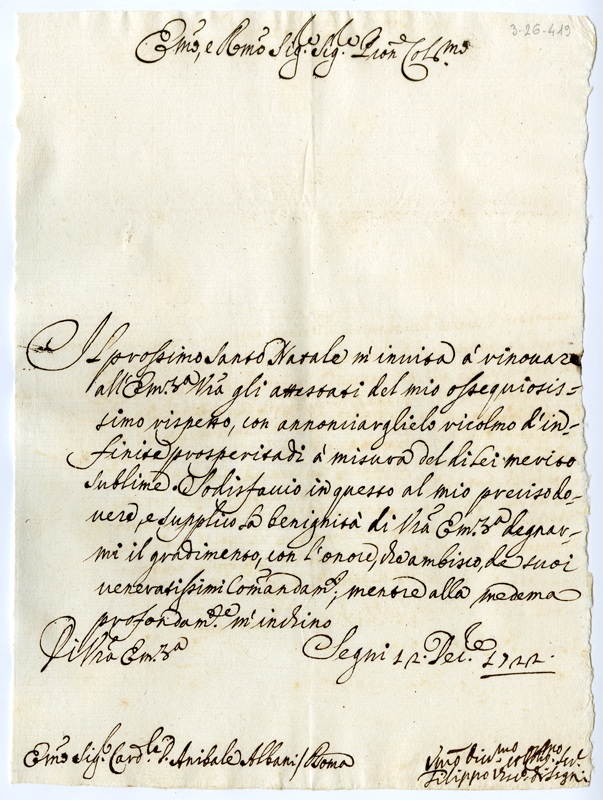 3-26-419
Em̃o, e Rm̃o Sig.r Sig.r Pron.e Col.mo
Il prossimo Santo Natale m'invita á rinovar
all'Em.za Vr̃a gli attestati del mio ossequiosis=
simo rispetto, con annonciarglielo ricolmo d'in=
finite prosperitadi á misura del di Lei merito
sublime. Sodisfaccio in questo al mio preciso do=
vere, e supplico la benignità di Vr̃a Em.za degnar=
mi il gradimento, con l'onore, che ambisco, de suoi
veneratissimi Com̃andam.ti, mentre alla medema
profondam.te m'inchino
Di Vr̃a Em.za Segni 12. Dec.re 1722.
Em̃o Sig.r Card.le D. Anibale Albani / Roma
Um̃o Div.mo
Filippo Vesc.o di Segni